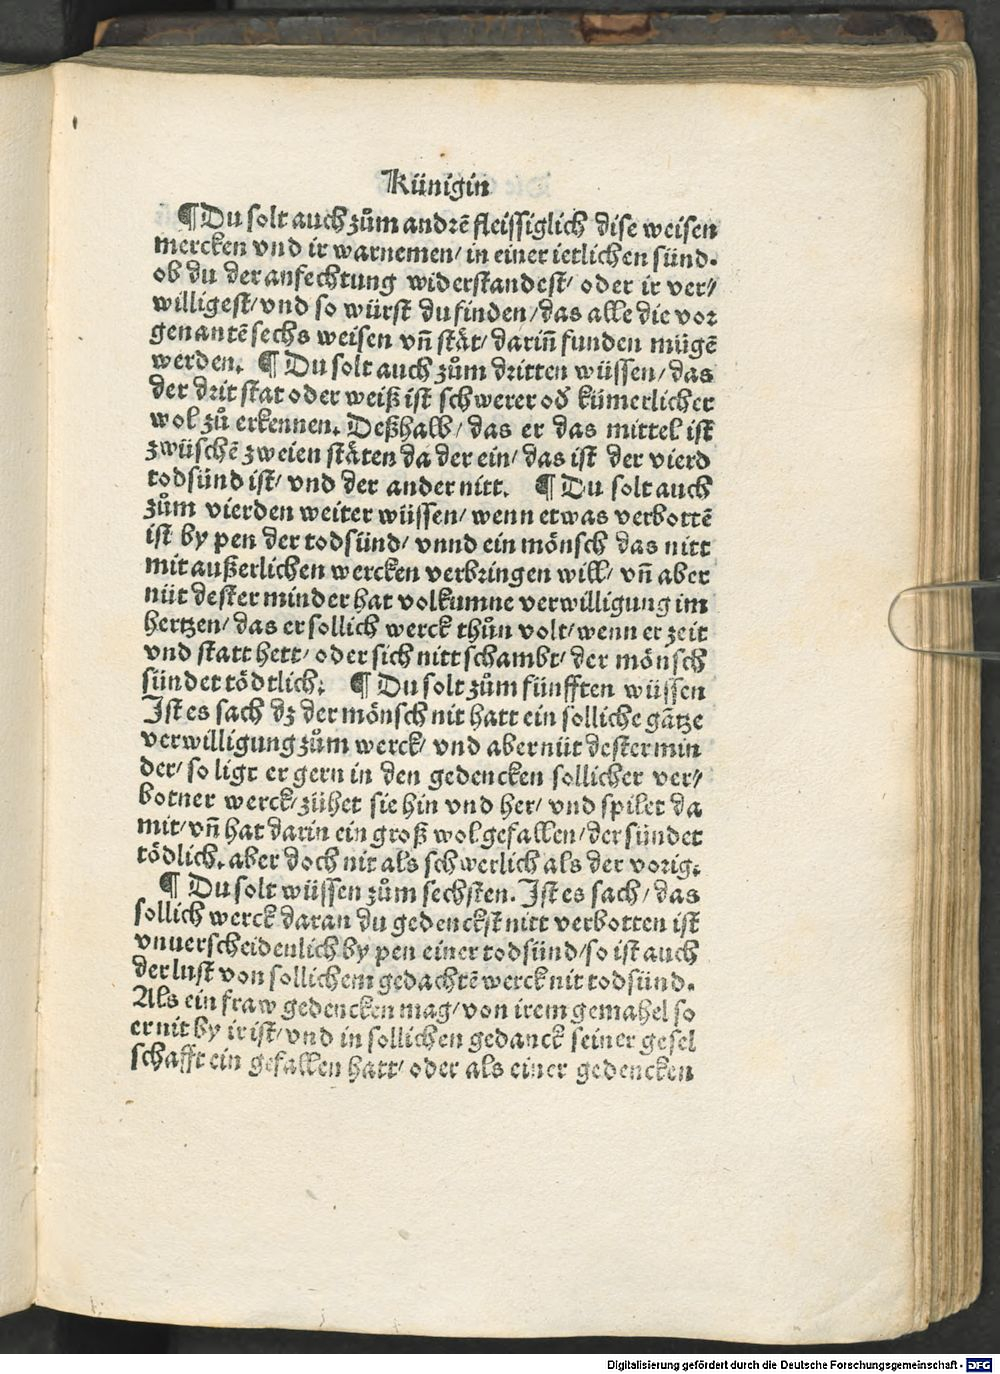 Künigin
¶ Du solt auch zům andrē fleissiglich dise weisen
mercken vnd ir warnemen/ in einer ietlichen sünd.
ob du der anfechtung widerstandest/ oder ir ver/
willigest/ vnd so würst du finden/ das alle die vor
genantē sechs weisen vn̄ stät/ darin̄ funden mügē
werden. ¶ Du solt auch zům dritten wüssen/ das
der drit stat oder weiß ist schwerer od' kümerlicher
wol zů erkennen. Deßhalb/ das er das mittel ist
zwüschē zweien stäten da der ein/ das ist der vierd
todsünd ist/ vnd der ander nitt. ¶ Du solt auch
zům vierden weiter wüssen/ wenn etwas verbottē
ist by pen der todsünd/ vnnd ein mönsch das nitt
mit außerlichen wercken verbringen will/ vn̄ aber
nüt dester minder hat volkumne verwilligung im
hertzen/ das er sollich werck thůn volt/ wenn er zeit
vnd statt hett/ oder sich nitt schambt/ der mönsch
sündet tödtlich. ¶ Du solt zům fünfften wüssen
Ist es sach dz der mönsch nit hatt ein solliche gātze
verwilligung zům werck/ vnd aber nüt dester min
der/ so ligt er gern in den gedencken sollicher ver/
botner werck/ zühet sie hin vnd her/ vnd spilet da
mit/ vn̄ hat darin ein groß wolgefallen/ der sündet
tödlich. aber doch nit als schwerlich als der vorig.
¶ Du solt wüssen zům sechsten. Ist es sach/ das
sollich werck daran du gedenckst nitt verbotten ist
vnuerscheidenlich by pen einer todsünd/ so ist auch
der lust von sollichem gedachtē werck nit todsünd.
Als ein fraw gedencken mag/ von irem gemahel so
er nit by ir ist/ vnd in sollichen gedanck seiner gesel
schafft ein gefallen hatt/ oder als einer gedencken
Digitalisierung gefördert durch die Deutsche Forschungsgemeinschaft - DFG